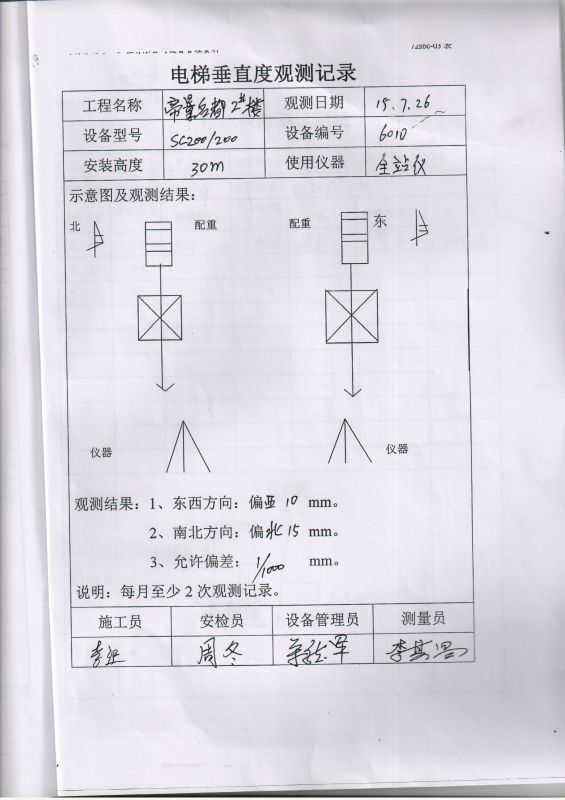 电梯垂直度观测记录
工程名称 2#楼 观测日期 15.7.26
设备型号 SC200/200 设备编号 6010
安装高度 30m 使用仪器 全站仪
示意图及观测结果：
北 配重 配重 东
仪器 仪器
观测结果：1、东西方向：偏西 10 mm。
2、南北方向：偏北 15 mm。
3、允许偏差：1/1000 mm。
说明：每月至少2次观测记录。
施工员 安检员 设备管理员 测量员
周冬